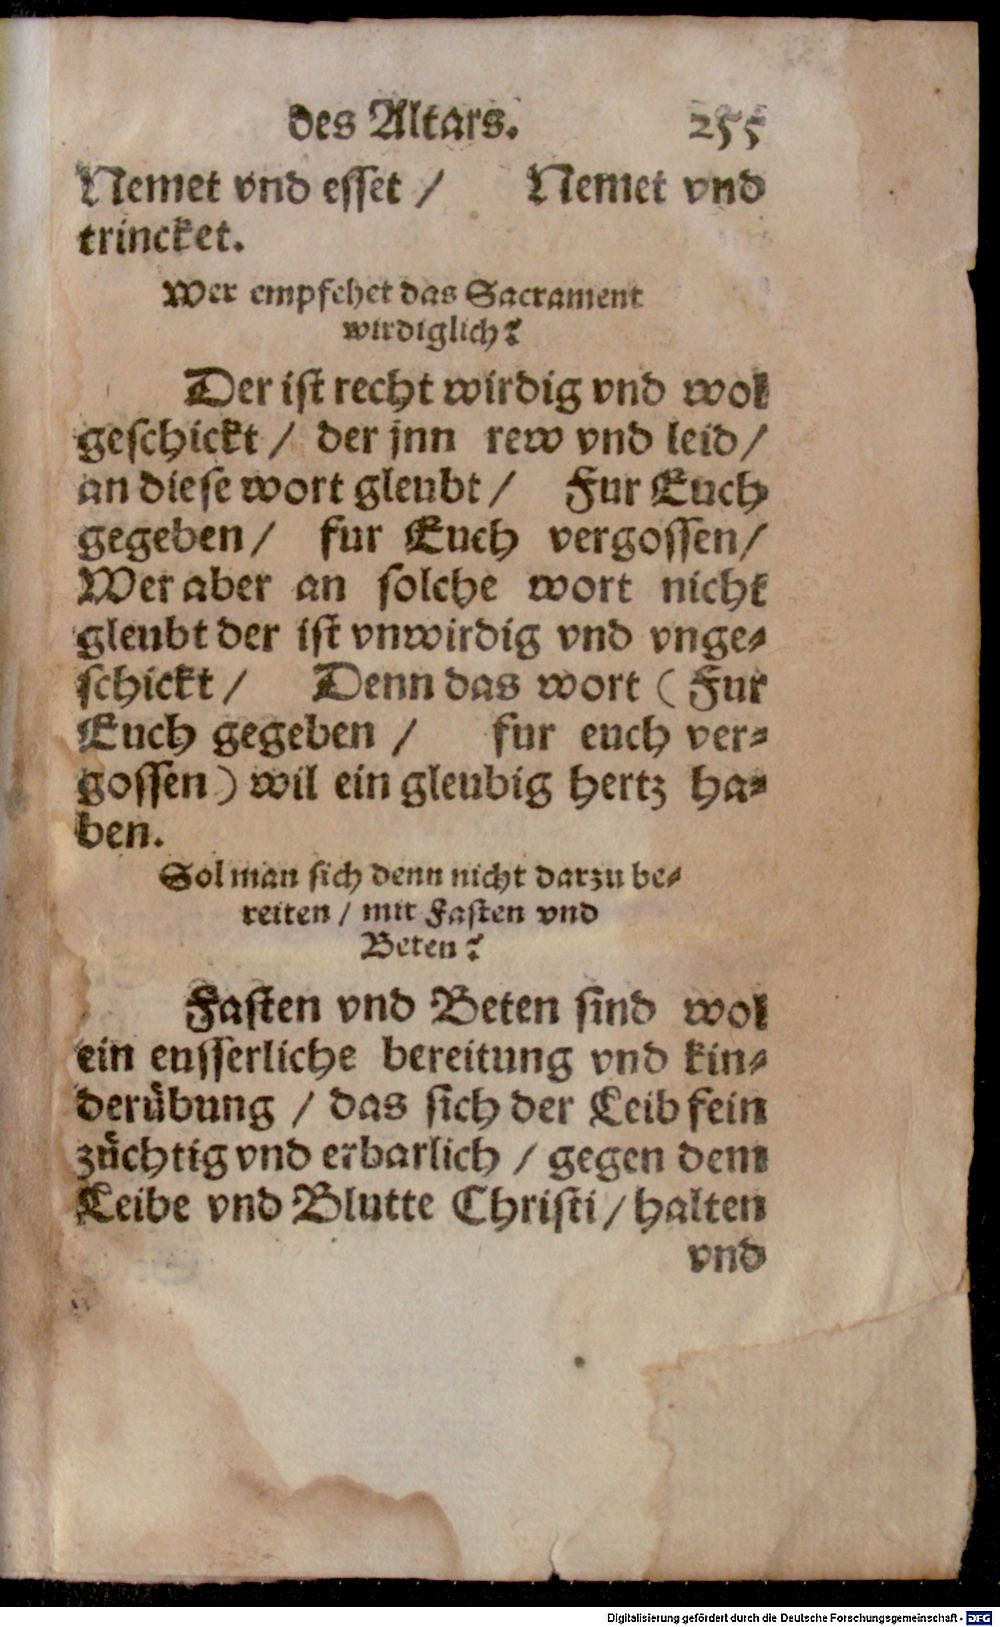 des Altars. 255
Nemet vnd esset / Nemet vnd
trincket.
Wer empfehet das Sacrament
wirdiglich?
Der ist recht wirdig vnd wol
geschickt / der jnn rew vnd leid /
an diese wort gleubt / Fur Euch
gegeben / fur Euch vergossen /
Wer aber an solche wort nicht
gleubt der ist vnwirdig vnd vnge-
schickt / Denn das wort ( Fur
Euch gegeben / fur euch ver-
gossen ) wil ein gleubig hertz ha-
ben.
Sol man sich denn nicht darzu be-
reiten / mit Fasten vnd
Beten?
Fasten vnd Beten sind wol
ein eusserliche bereitung vnd kin-
derübung / das sich der Leib fein
züchtig vnd erbarlich / gegen dem
Leibe vnd Blutte Christi / halten
vnd
Digitalisierung gefördert durch die Deutsche Forschungsgemeinschaft - DFG